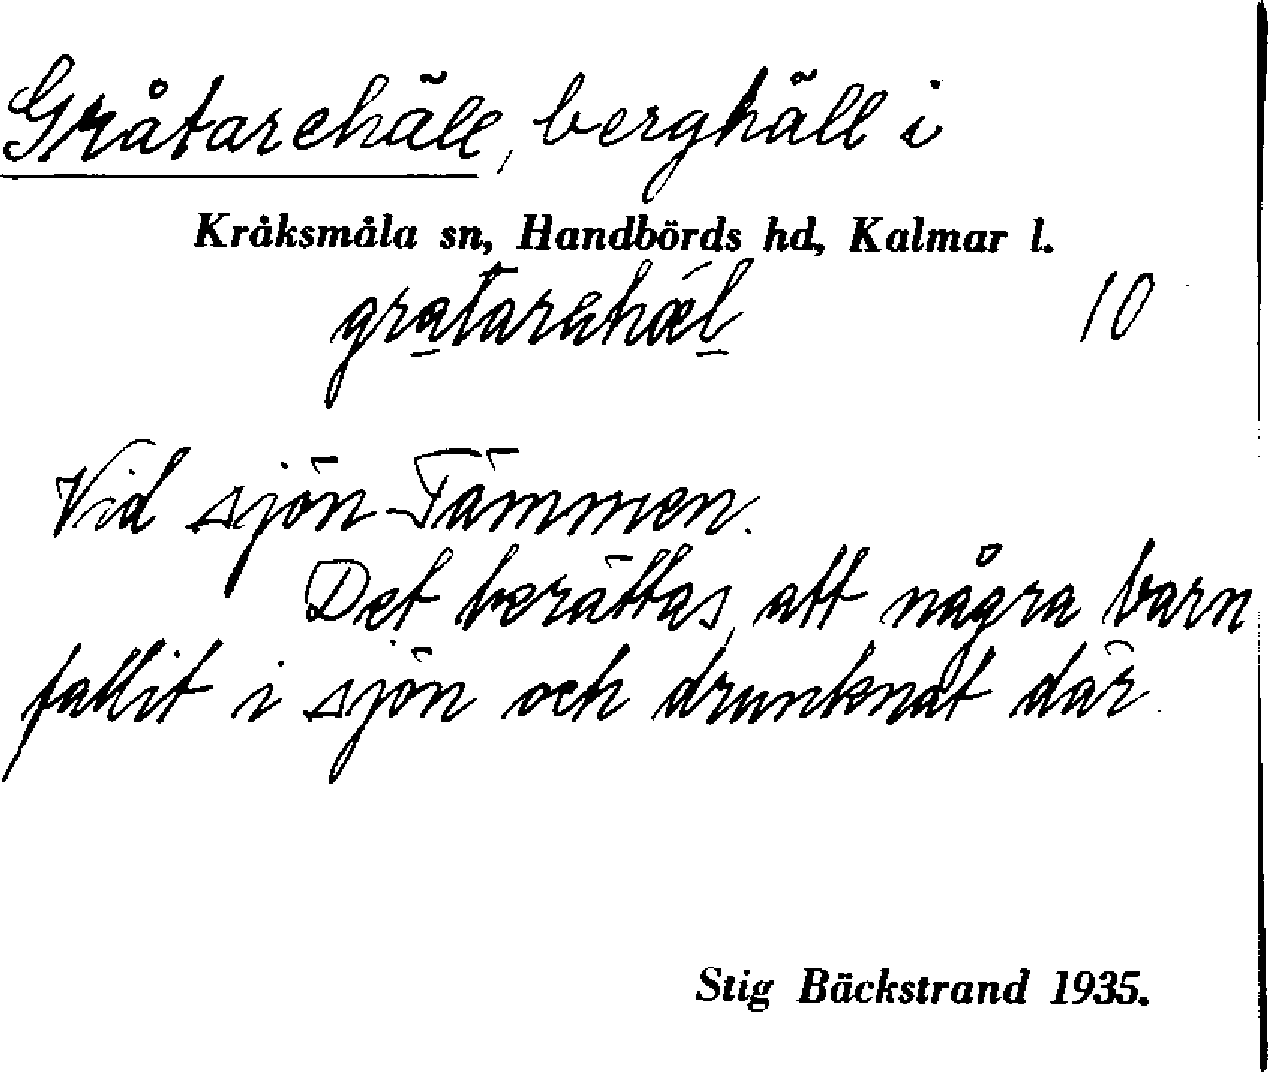 Gråtarehäll, berghäll i
Kråksmåla sn, Handbörds hd, Kalmar l.
10
Vid sjön Tämmen.
Det berättas, att några barn
fallit i sjön och drunknat där.
Stig Bäckstrand 1935.